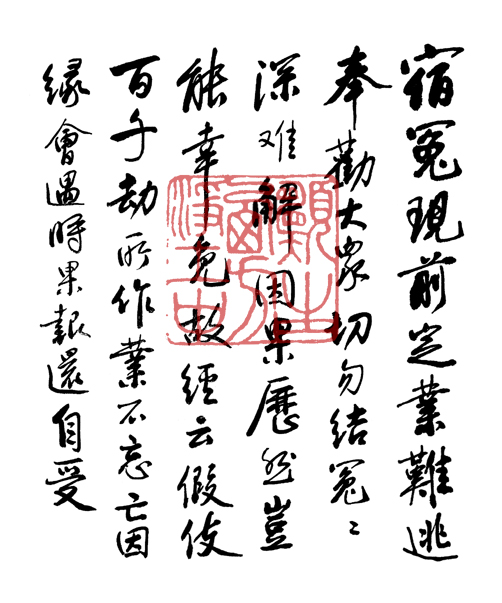 宿冤現前定業難逃
奉勸大眾切勿結冤〻
深难解因果歷然豈
能幸免故經云假使
百千劫所作業不忘亡因
緣會遇時果報還自受
願生西方淨土